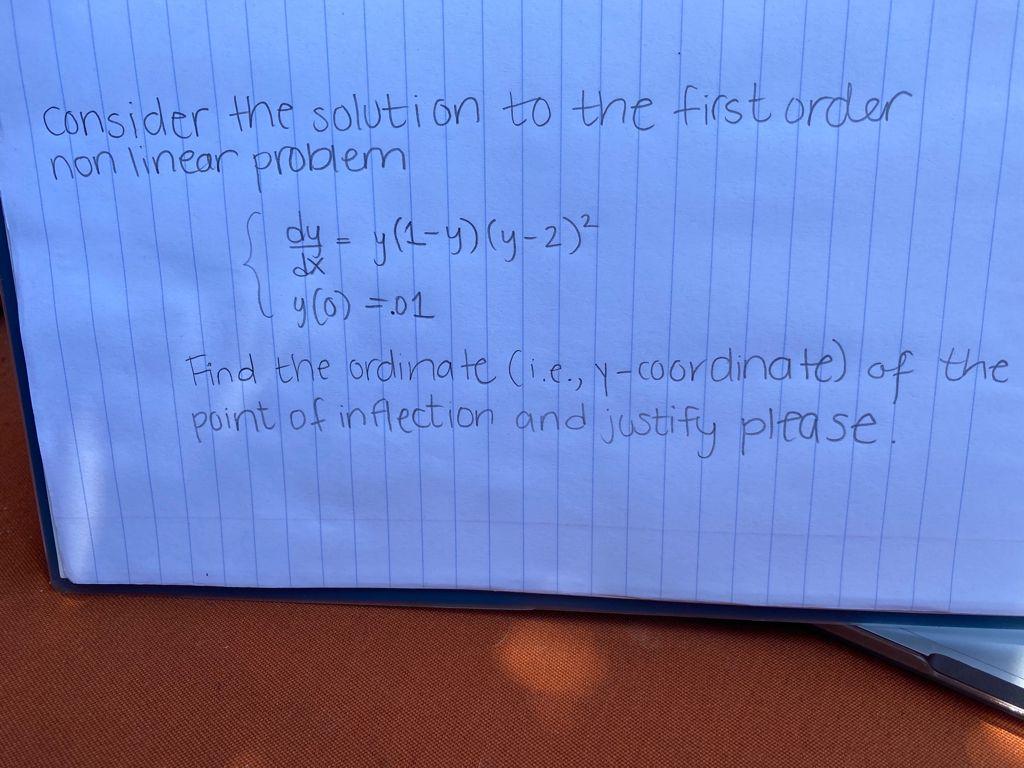 Consider the solution to the first order
non linear problem
dy/dx = y(1-y)(y-2)²
y(0) = .01
Find the ordinate (i.e., y-coordinate) of the
point of inflection and justify please!